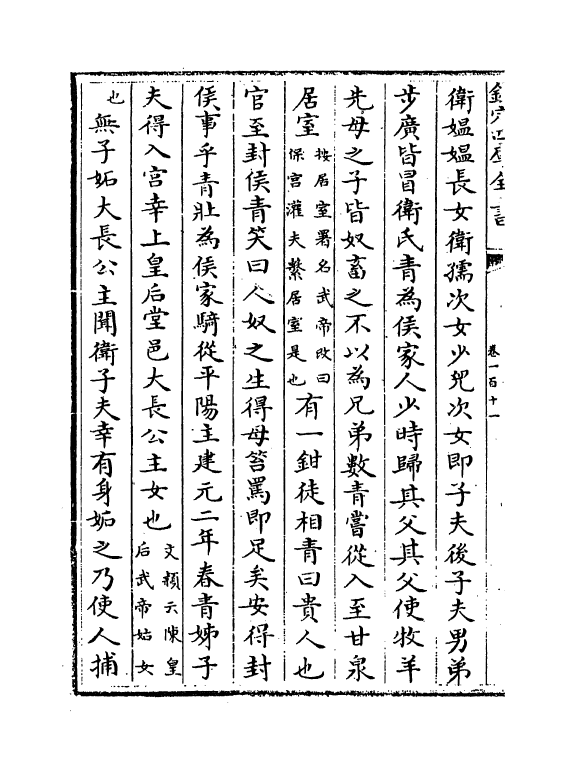 欽定四庫全書
卷一百十一
衛媪媪長女衛孺次女少兒次女即子夫後子夫男弟
步廣皆冒衛氏青為侯家人少時歸其父其父使牧羊
先母之子皆奴畜之不以為兄弟數青嘗從入至甘泉
居室
按居室署名武帝改曰
保宫灌夫繫居室是也
有一鉗徒相青曰貴人也
官至封侯青笑曰人奴之生得毋笞罵即足矣安得封
侯事乎青壯為侯家騎從平陽主建元二年春青姊子
夫得入宫幸上皇后堂邑大長公主女也
文穎云陳皇
后武帝姑女
也
無子妬大長公主聞衛子夫幸有身妬之乃使人捕